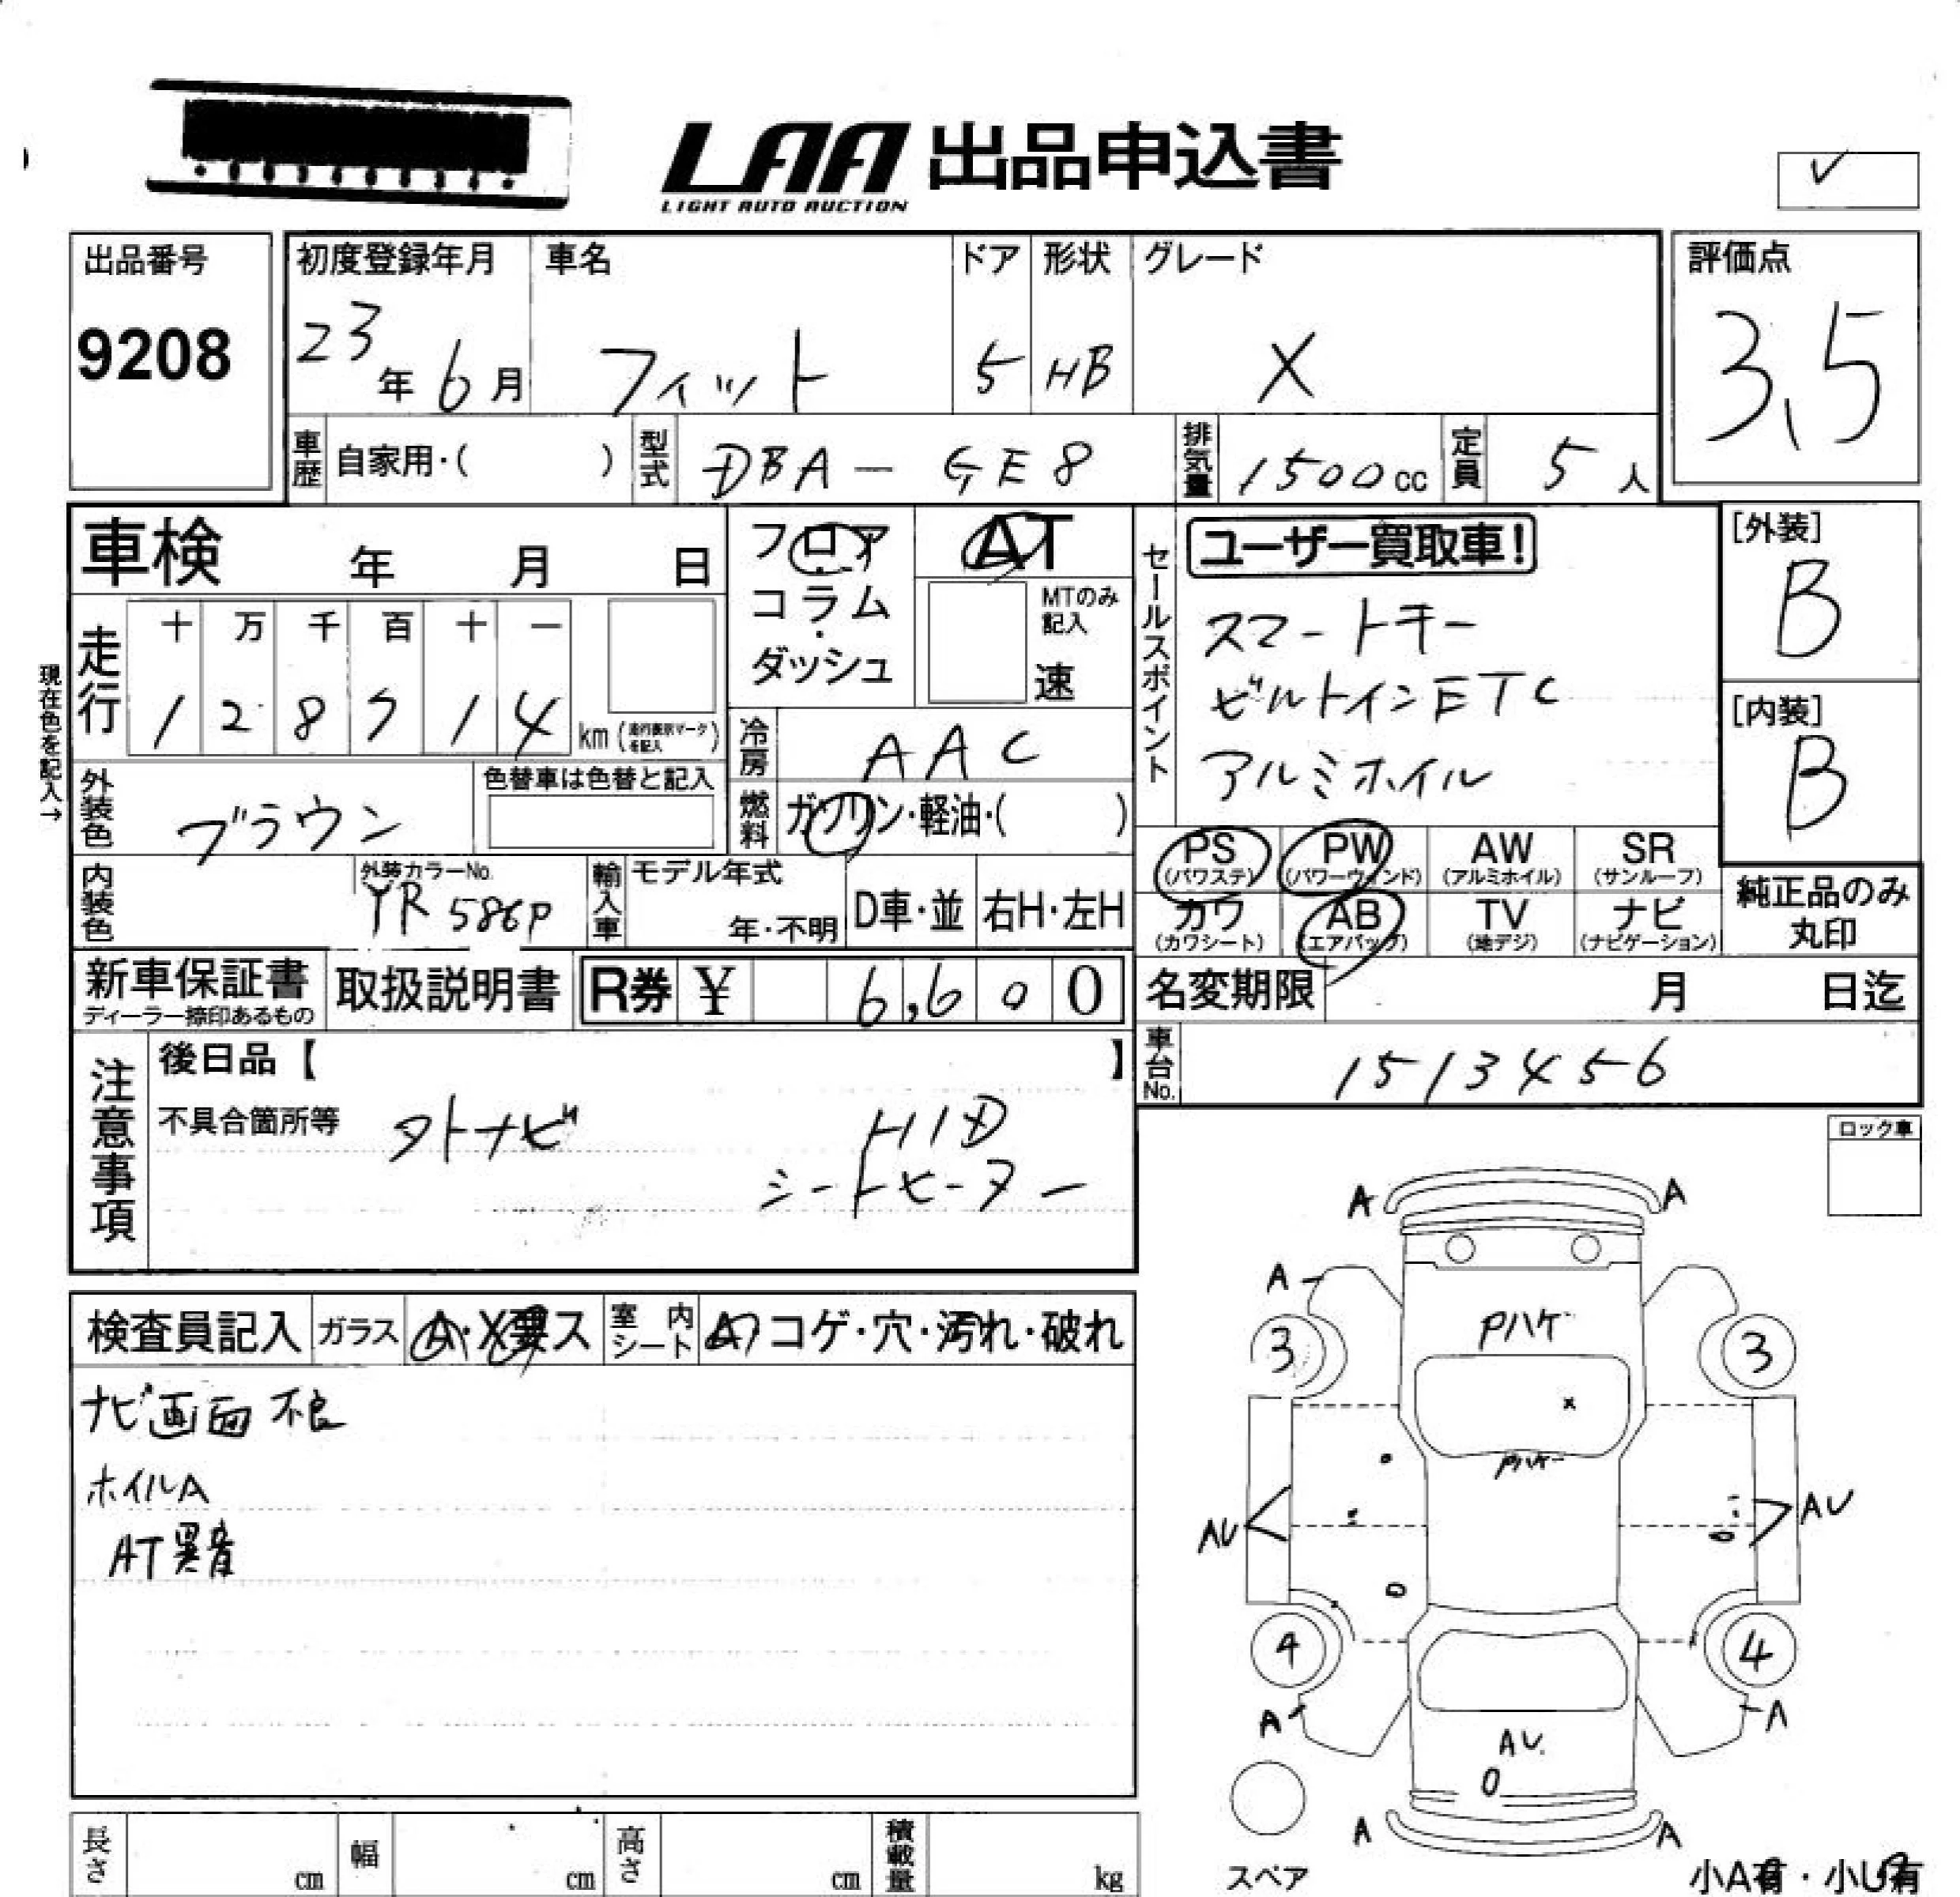 LAA 出品申込書
LIGHT AUTO AUCTION
出品番号
9208
初度登録年月
23年6月
車名
フィット
ドア
5
形状
HB
グレード
X
評価点
3.5
車歴 自家用・( )
型式 DBA-GE8
排気量 1500cc
定員 5人
車検 年 月 日
走行
十 万 千 百 十 一
1 2 8 7 1 4 km (走行表示マークを記入)
現在色を記入→
フロア・コラム・ダッシュ
AT
MTのみ記入
速
冷房 AAC
燃料 ガソリン・軽油・( )
外装色 ブラウン
色替車は色替と記入
内装色
外装カラーNo.
YR586P
輸入車
モデル年式
年・不明
D車・並
右H・左H
セールスポイント
ユーザー買取車!
スマートキー
ビルトインETC
アルミホイル
[外装]
B
[内装]
B
PS (パワステ)
PW (パワーウィンド)
AW (アルミホイル)
SR (サンルーフ)
カワ (カワシート)
AB (エアバッグ)
TV (地デジ)
ナビ (ナビゲーション)
純正品のみ丸印
新車保証書
ディーラー捺印あるもの
取扱説明書
R券 ¥ 6,600
名変期限 月 日迄
車台No. 1513456
注意事項
後日品【 】
不具合箇所等
外ナビ
HID
シートヒーター
ロック車
検査員記入
ガラス A・X要ス
室内シート コゲ・穴・汚れ・破れ
ナビ画面不良
ホイルA
AT異音
A A
A
Pハゲ
3 3
x
Pハゲ
AU AU
4 4
A A
AU
A A
スペア
小A有・小U有
長さ cm
幅 cm
高さ cm
積載量 kg